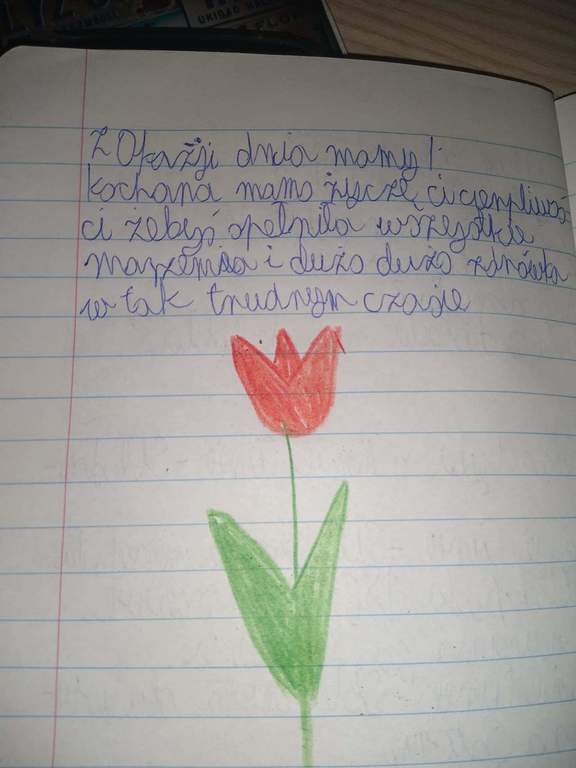 UNIDAD
Z Okazji dnia mamy!
kochana mamo życzę ci cierpliwoś
ci żebyś spełniła wszystkie
marzenia i dużo dużo zdrówka
w tak trudnym czasie